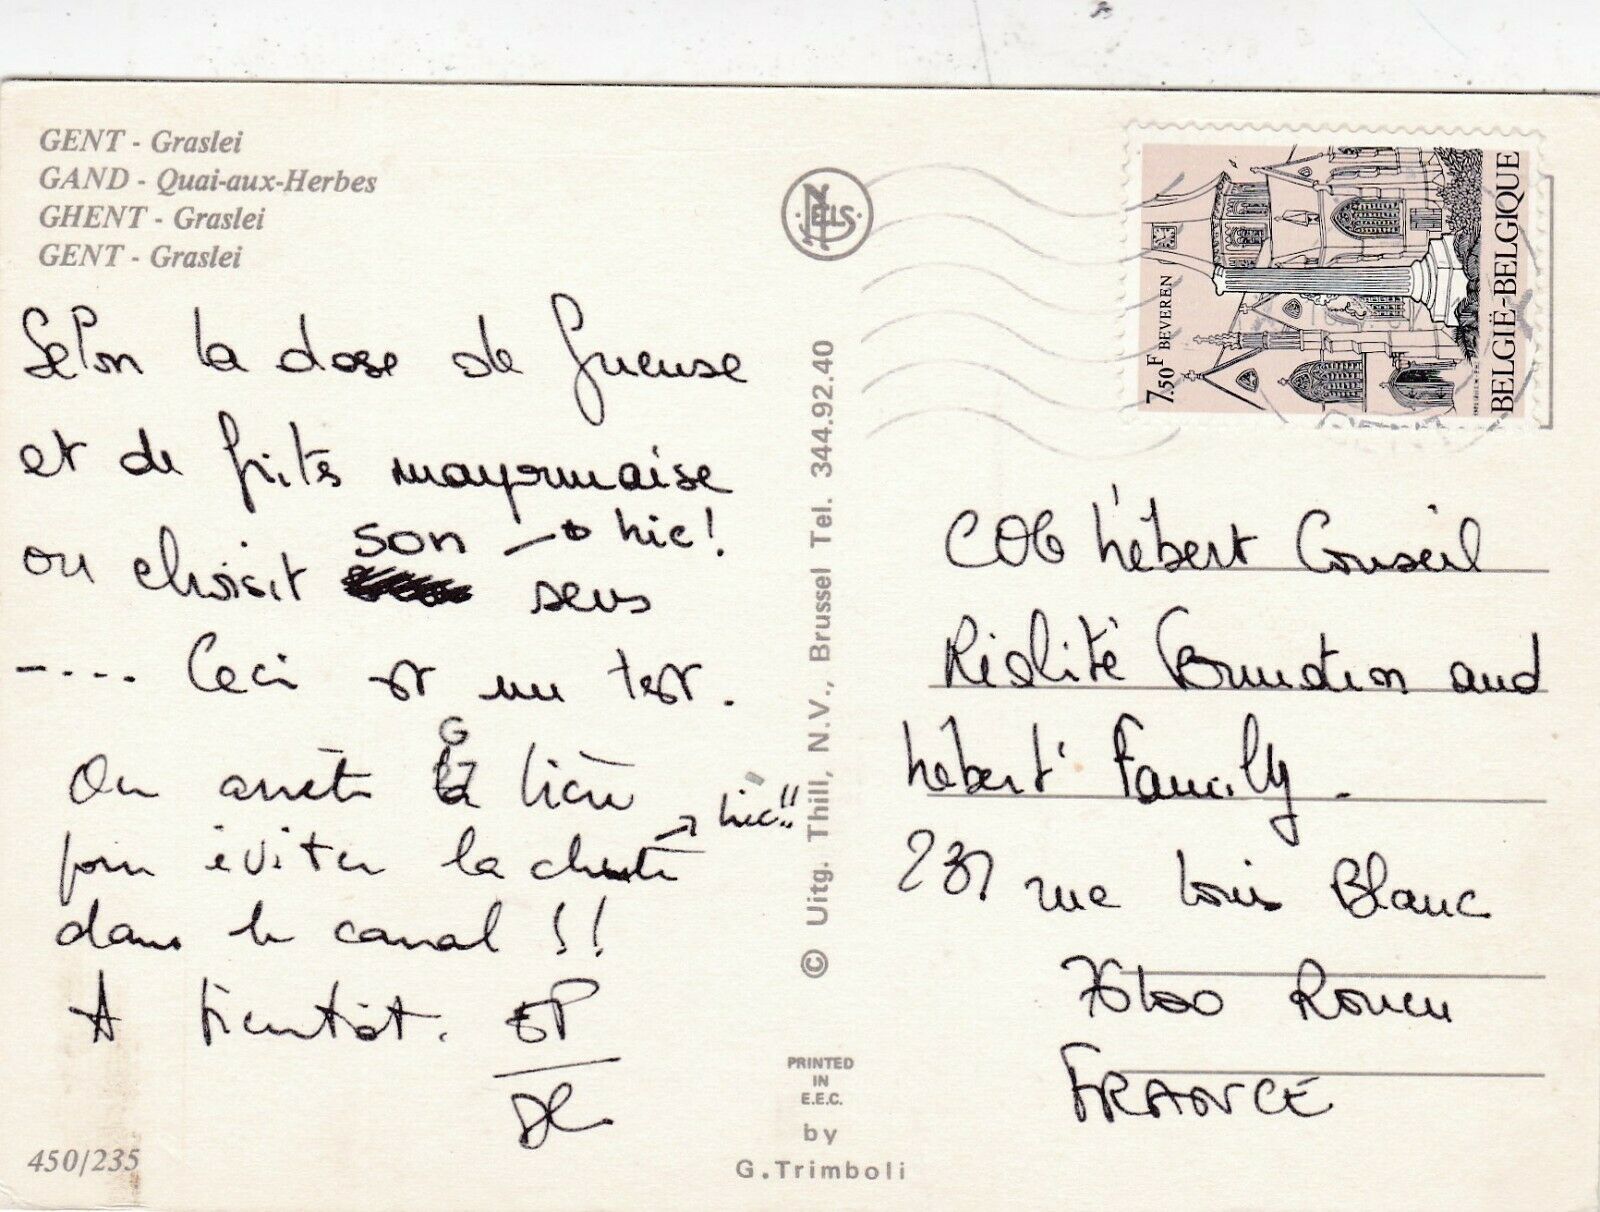 GENT - Graslei
GAND - Quai-aux-Herbes
GHENT - Graslei
GENT - Graslei
Selon la dose de Gueuse
et de frites mayonnaise
on choisit son sens → hic!
.... Ceci est un test.
On arrête la bière
pour éviter la chute → hic!!
dans le canal !!
A bientôt.
450/235
© Uitg. Thill, N.V., Brussel Tel. 344.92.40
PRINTED
IN
E.E.C.
by
G.Trimboli
NELS
7.50F BEVEREN
BELGIË-BELGIQUE
hébert Conseil
and
hébert Family.
231 rue Louis Blanc
76100 Rouen
FRANCE